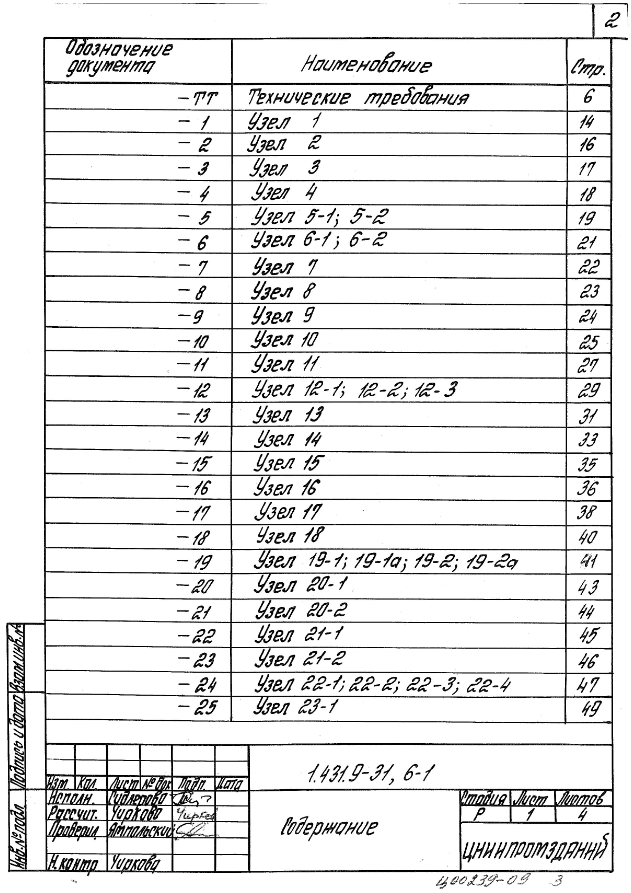 2
Обозначение документа Наименование Стр.
- ТТ Технические требования 6
- 1 Узел 1 14
- 2 Узел 2 16
- 3 Узел 3 17
- 4 Узел 4 18
- 5 Узел 5-1; 5-2 19
- 6 Узел 6-1; 6-2 21
- 7 Узел 7 22
- 8 Узел 8 23
- 9 Узел 9 24
- 10 Узел 10 25
- 11 Узел 11 27
- 12 Узел 12-1; 12-2; 12-3 29
- 13 Узел 13 31
- 14 Узел 14 33
- 15 Узел 15 35
- 16 Узел 16 36
- 17 Узел 17 38
- 18 Узел 18 40
- 19 Узел 19-1; 19-1а; 19-2; 19-2а 41
- 20 Узел 20-1 43
- 21 Узел 20-2 44
- 22 Узел 21-1 45
- 23 Узел 21-2 46
- 24 Узел 22-1; 22-2; 22-3; 22-4 47
- 25 Узел 23-1 49
Взам.инв.№
Подпись и дата
Инв.№ подл.
1.431.9-31, 6-1
Изм Кол. Лист № док Подп. Дата
Исполн.
Рассчит. Чиркова
Проверил
Н.контр Чиркова
Содержание
Стадия Лист Листов
Р 1 4
ЦНИИПРОМЗДАНИЙ
Ц00239-09 3